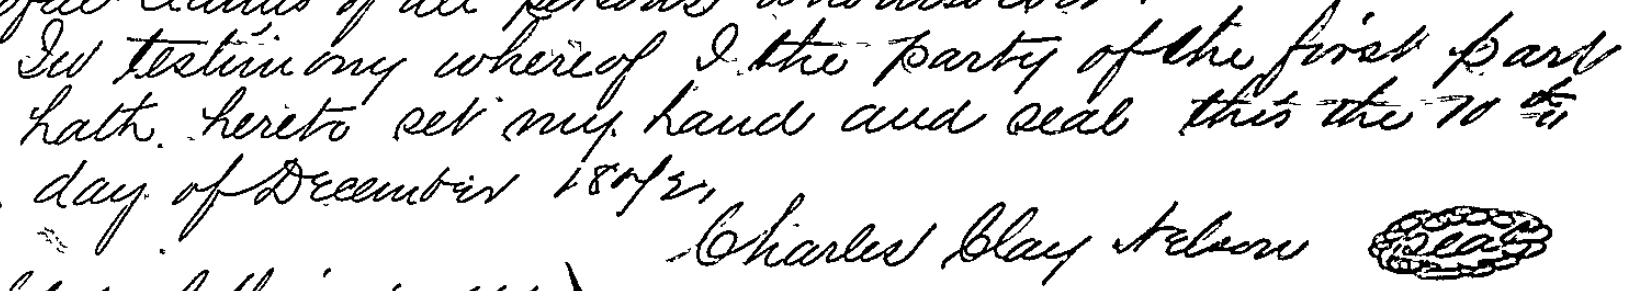 of all persons
In testimony whereof I the party of the first part
hath hereto set my hand and seal this the 10th
day of December
Charles Clay Nelson Seal